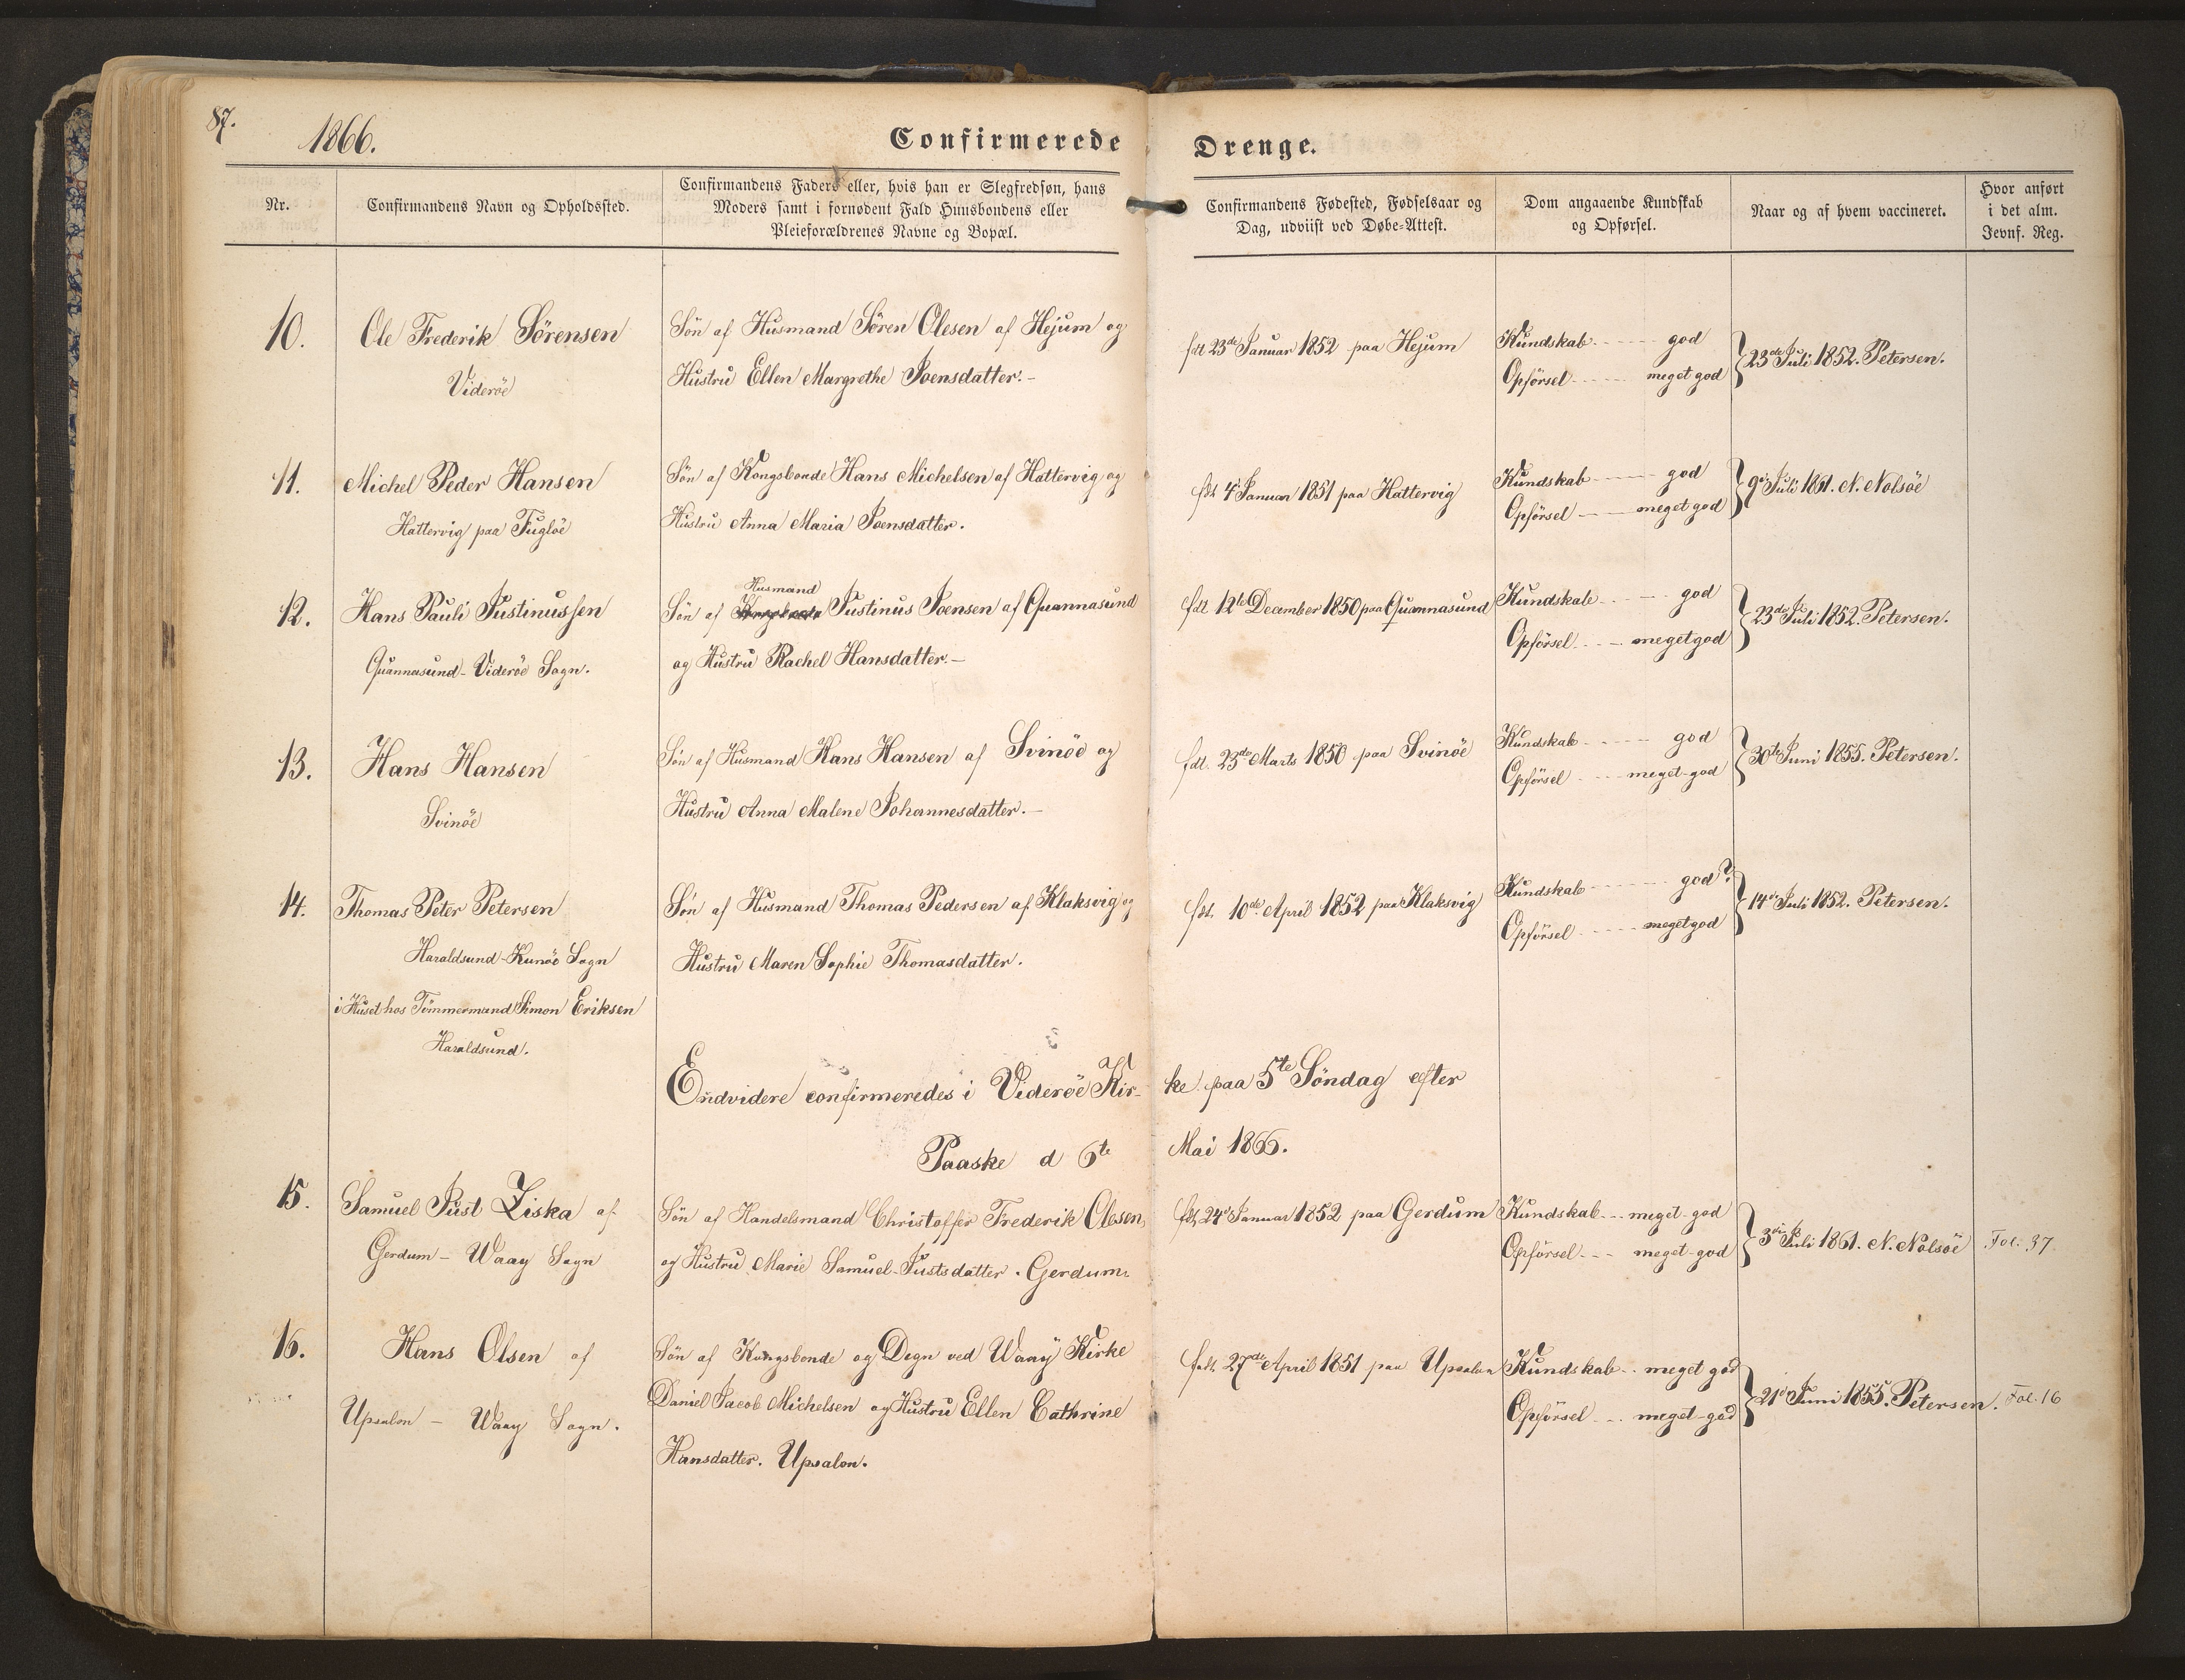 87.
1866.
Confirmerede Drenge.
Nr.
Confirmandens Navn og Opholdssted.
Confirmandens Faders eller, hvis han er Slegfredsøn, hans
Moders samt i fornødent Fald Huusbondens eller
Pleieforældrenes Navne og Bopæl.
Confirmandens Fødested, Fødselsaar og
Dag, udviist ved Døbe-Attest.
Dom angaaende Kundskab
og Opførsel.
Naar og af hvem vaccineret.
Hvor anført
i det alm.
Jevnf. Reg.
10.
Ole Frederik Sörensen
Videröe
Sön af Husmand Sören Olesen af Hejum og
Hustru Ellen Margrethe Joensdatter.-
fdt 23de Januar 1852 paa Hejum
Kundskab - - - - god
Opförsel - - - - meget god
23de Juli 1852. Petersen.
11.
Michel Peder Hansen
Hattervig paa Fuglöe
Sön af Kongsbonde Hans Michelsen af Hattervig og
Hustru Anna Maria Joensdatter.
fdt. 4de Januar 1851 paa Hattervig
Kundskab - - - - god
Opförsel - - - - meget god
9de Juli 1861. N. Nolsöe
12.
Hans Pauli Justinussen
Quannasund - Videröe Sogn.
Husmand
Sön af Justinus Joensen af Quannasund
og Hustru Rachel Hansdatter.-
fdt. 12te December 1850 paa Quannasund
Kundskab - - - - god
Opförsel - - - - meget god
23de Juli 1852. Petersen.
13.
Hans Hansen
Svinöe
Sön af Husmand Hans Hansen af Svinöe og
Hustru Anna Malene Johannesdatter.-
fdt. 23de Marts 1850 paa Svinöe
Kundskab - - - - god
Opförsel - - - - meget god
30te Juni 1855. Petersen.
14.
Thomas Peter Petersen
Haraldsund - Kunöe Sogn
i Huset hos Tömmermand Simon Eriksen
Haraldsund.
Sön af Husmand Thomas Pedersen af Klaksvig og
Hustru Maren Sophie Thomasdatter.
fdt. 10de April 1852 paa Klaksvig
Kundskab - - - - god?
Opförsel - - - - meget god
14de Juli 1852. Petersen.
Endvidere confirmeredes i Videröe Kirke paa 5te Söndag efter
Paaske d 6te Mai 1866.
15.
Samuel Just Ziska af
Gerdum - Waay Sogn
Sön af Handelsmand Christoffer Frederik Olesen
og Hustru Marie Samuel-Justsdatter. Gerdum.
fdt. 24de Januar 1852 paa Gerdum
Kundskab - - meget god
Opförsel - - meget god
3die Juli 1861. N. Nolsöe
Fol: 37.
16.
Hans Olsen af
Upsalon - Waay Sogn.
Sön af Kongsbonde og Degn ved Waay Kirke
Daniel Jacob Michelsen og Hustru Ellen Cathrine
Hansdatter. Upsalon.
fdt. 27de April 1851 paa Upsalon
Kundskab - - meget god
Opförsel - - meget god
21de Juni 1855. Petersen.
Fol. 16